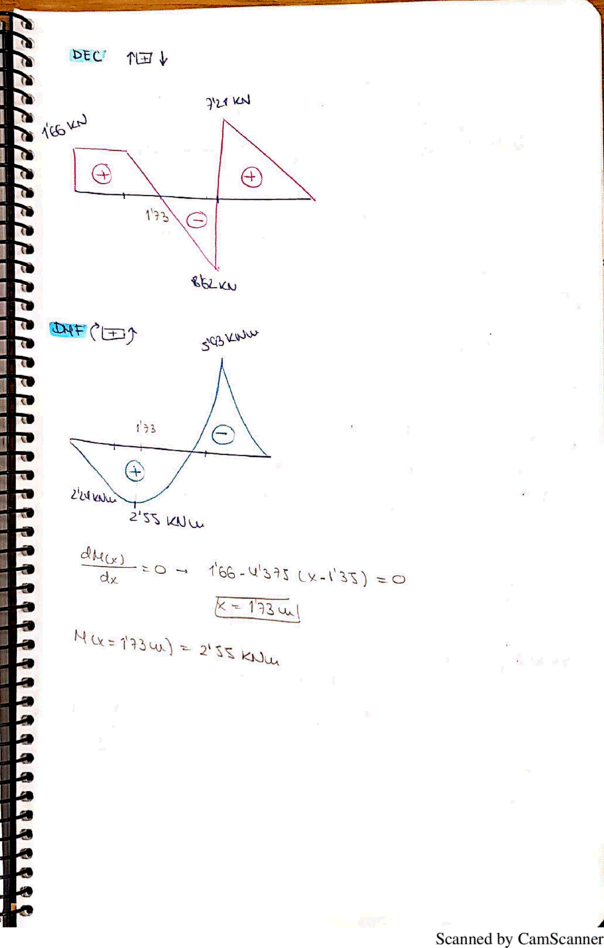 DEC ↑[+]↓
7'21 KN
1'66 KN
+
+
1'73
-
8'62 KN
DMF (↱[+]↰)
5'03 KNm
1'73
-
+
2'24 KNm
2'55 KNm
dM(x)/dx = 0 → 1'66 - 4'375 (x-1'35) = 0
x = 1'73 m
M(x = 1'73 m) = 2'55 KNm
Scanned by CamScanner